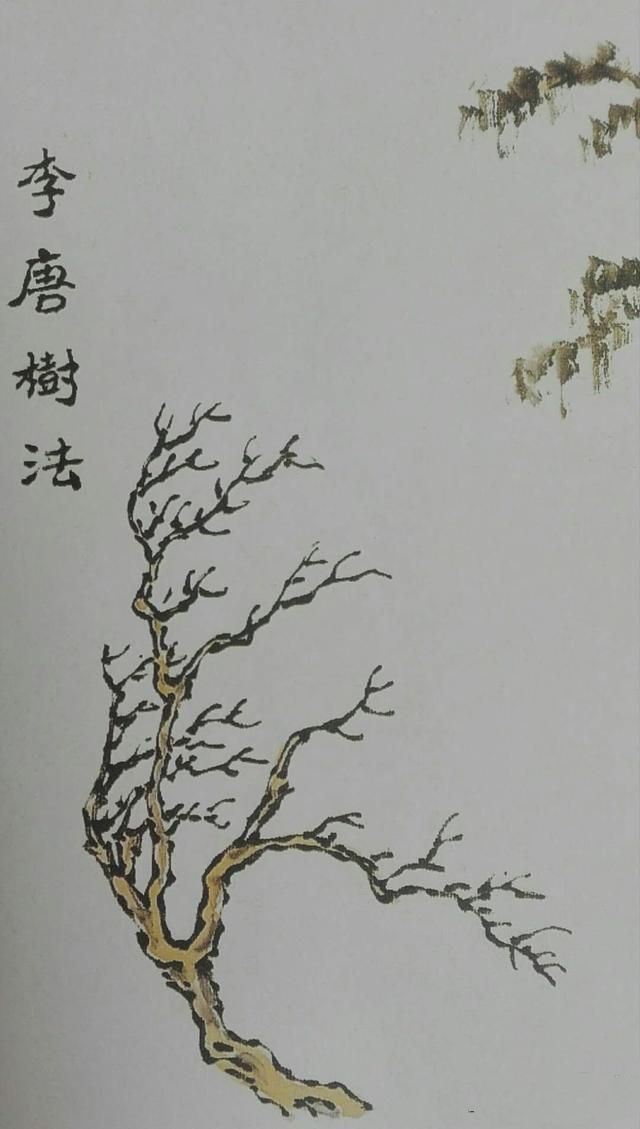 李唐樹法